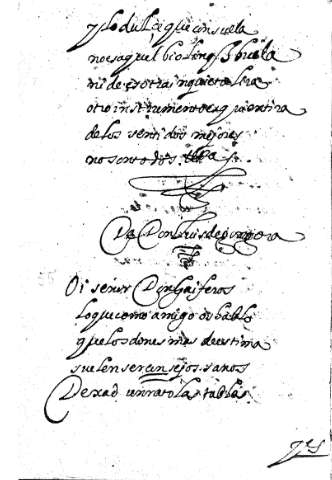 y lo dulçe que consuela
no es aquel biolin q buela
ni de esotra inquieta lira
otro instrumento es quien tira
de los sentidos mejores
no son todos
De Don Luis de gongora
Oi señor Don Gaiferos
lo que como amigo os hablo
que los dones mas de estima
suelen ser consejos sanos
Dexad un rato las tablas